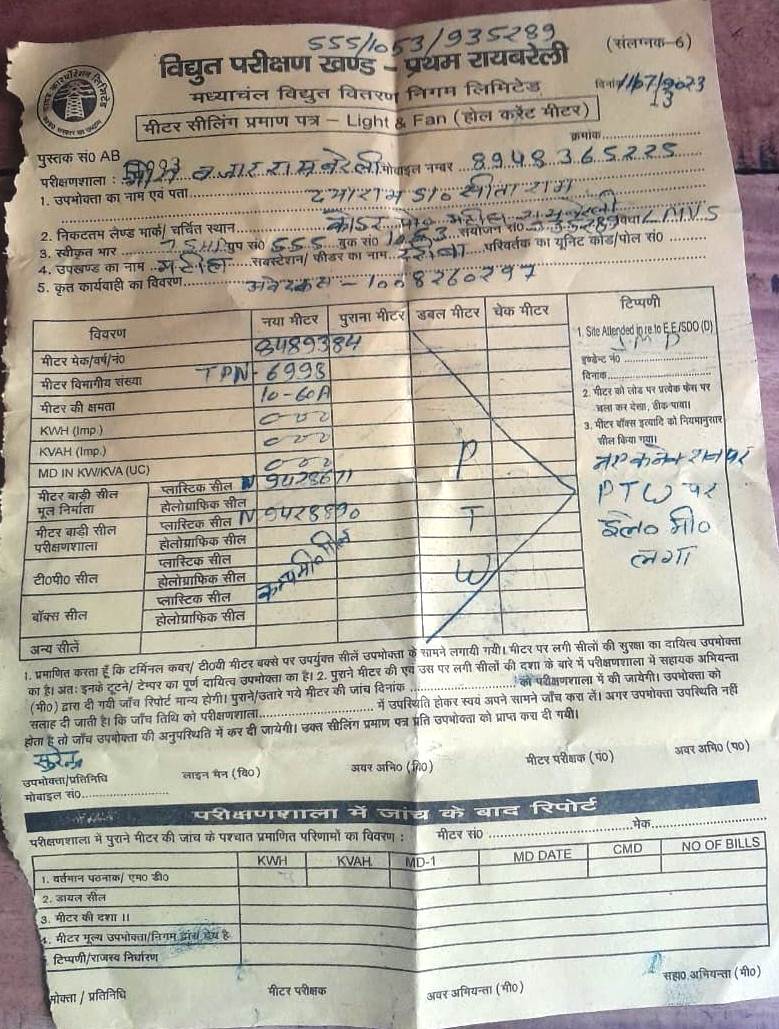 555/1053/935289
(संलग्नक-6)
विद्युत परीक्षण खण्ड - प्रथम रायबरेली
मध्याचंल विद्युत वितरण निगम लिमिटेड
दिनांक
मीटर सीलिंग प्रमाण पत्र – Light & Fan (होल करेंट मीटर)
पुस्तक सं0 AB
क्रमांक
परीक्षणशाला : मोबाइल नम्बर 8948365225
1. उपभोक्ता का नाम एवं पता दयाराम S/o सीताराम
2. निकटतम लेण्ड मार्क/ चर्चित स्थान
3. स्वीकृत भार ग्रुप सं0 555 बुक सं0 1053 संयोजन सं0 935289 विधा LMVS
4. उपखण्ड का नाम सबस्टेशन/ फीडर का नाम परिवर्तक का यूनिट कोड/पोल सं0
5. कृत कार्यवाही का विवरण - 1008260297
विवरण नया मीटर पुराना मीटर डबल मीटर चेक मीटर टिप्पणी
मीटर मेक/वर्ष/नं0 8489384
मीटर विभागीय संख्या TPN-6998
मीटर की क्षमता 10-60A
KWH (Imp.) 000
KVAH (Imp.) 000
MD IN KW/KVA (UC) 000
मीटर बाड़ी सील मूल निर्माता प्लास्टिक सील 9428671
होलोग्राफिक सील
मीटर बाड़ी सील परीक्षणशाला प्लास्टिक सील 9428890
होलोग्राफिक सील
टी0पी0 सील प्लास्टिक सील
होलोग्राफिक सील
बॉक्स सील प्लास्टिक सील
होलोग्राफिक सील
अन्य सीलें
P
T
W
1. Site Attended in re to E.E./SDO (D)
इण्डेन्ट नं0
दिनांक
2. मीटर को लोड पर प्रत्येक फेस पर
चला कर देखा, ठीक पाया।
3. मीटर बॉक्स इत्यादि को नियमानुसार
सील किया गया।
नए कनेक्शन पर
PTW पर
इले0 मी0
लगा
1. प्रमाणित करता हूँ कि टर्मिनल कवर/ टी0पी मीटर बक्से पर उपर्युक्त सीलें उपभोक्ता के सामने लगायी गयी। मीटर पर लगी सीलों की सुरक्षा का दायित्व उपभोक्ता
का है। अतः इनके टूटने/ टेम्पर का पूर्ण दायित्व उपभोक्ता का है। 2. पुराने मीटर की एवं उस पर लगी सीलों की दशा के बारे में परीक्षणशाला में सहायक अभियन्ता
(मी0) द्वारा दी गयी जाँच रिपोर्ट मान्य होगी। पुराने/उतारे गये मीटर की जांच दिनांक को परीक्षणशाला में की जायेगी। उपभोक्ता को
सलाह दी जाती है। कि जाँच तिथि को परीक्षणशाला में उपस्थिति होकर स्वयं अपने सामने जाँच करा लें। अगर उपभोक्ता उपस्थिति नहीं
होता है तो जाँच उपभोक्ता की अनुपस्थिति में कर दी जायेगी। उक्त सीलिंग प्रमाण पत्र प्रति उपभोक्ता को प्राप्त करा दी गयी।
सुरेन्द्र
उपभोक्ता/प्रतिनिधि लाइन मैन (वि0) अवर अभि0 (वि0) मीटर परीक्षक (प0) अवर अभि0 (प0)
मोबाइल सं0
परीक्षणशाला में जांच के बाद रिपोर्ट
परीक्षणशाला में पुराने मीटर की जांच के पश्चात प्रमाणित परिणामों का विवरण : मीटर सं0 मेक
KWH KVAH MD-1 MD DATE CMD NO OF BILLS
1. वर्तमान पठनाक/ एम0 डी0
2. डायल सील
3. मीटर की दशा ।।
4. मीटर मूल्य उपभोक्ता/निगम द्वारा देय है
टिप्पणी/राजस्व निर्धारण
भोक्ता / प्रतिनिधि मीटर परीक्षक अवर अभियन्ता (मी0) सहा0 अभियन्ता (मी0)